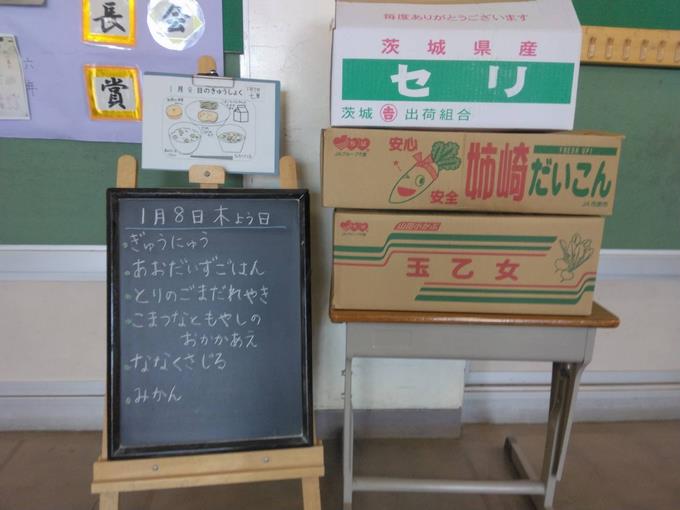 長
会
賞
1月8日のきゅうしょく
1月8日木よう日
ぎゅうにゅう
あおだいずごはん
とりのごまだれやき
こまつなともやしの
おかかあえ
ななくさじる
みかん
毎度ありがとうございます
茨城県産
セリ
茨城 出荷組合
安心
安全
姉崎だいこん
FRESH UP!
JA市原市
玉乙女